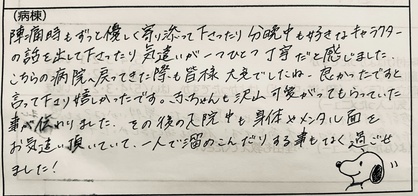 (病棟)
陣痛時もずっと優しく寄り添って下さったり分娩中も好きなキャラクター
の話を出して下さったり気遣いが一つひとつ丁寧だと感じました。
こちらの病院へ戻ってきた際も皆様 大変でしたね…良かったですと
言って下さり嬉しかったです。赤ちゃんも沢山可愛がってもらっていた
事が伝わりました。その後の入院中も身体やメンタル面を
お気遣い頂いていて、一人で溜めこんだりする事もなく過ごせ
ました!